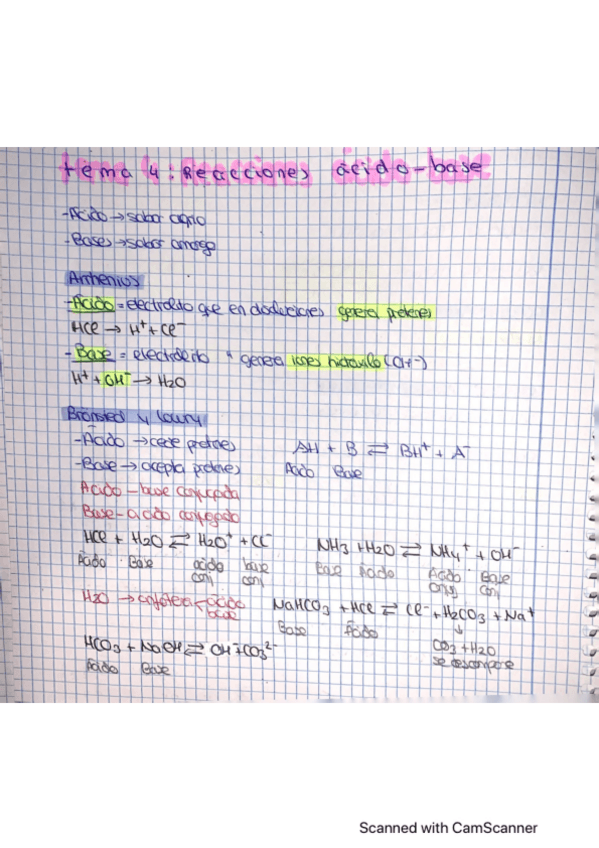 tema 4: Reacciones ácido-base
-Ácido → sabor agrio
-Bases → sabor amargo
Arrhenios
-Ácido = electrolito que en disoluciones genera protones
HCl → H⁺ + Cl⁻
-Base = electrolito " genera iones hidroxilo (OH⁻)
H⁺ + OH⁻ → H₂O
Brönsted y lowry
-Ácido → cede protones AH + B ⇄ BH⁺ + A⁻
-Base → acepta protones Ácido Base
Ácido - base conjugada
Base - ácido conjugado
HCl + H₂O ⇄ H₂O⁺ + Cl⁻ NH₃ + H₂O ⇄ NH₄⁺ + OH⁻
Ácido Base ácido conj base conj Base Ácido Ácido conj Base conj
H₂O → anfótera ácido base NaHCO₃ + HCl ⇄ Cl⁻ + H₂CO₃ + Na⁺
Base Ácido ↓
HCO₃ + NaOH ⇄ OH⁻ + CO₃²⁻ CO₃ + H₂O
Ácido Base se descompone
Scanned with CamScanner